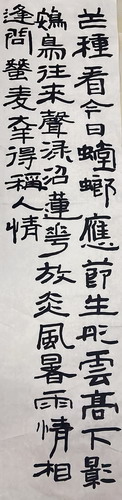 芒種看今日螗螂應節生彤雲高下影
鴳鳥往來聲淥沼蓮花放炎風暑雨情相
逢問蠶麥幸得稱人情